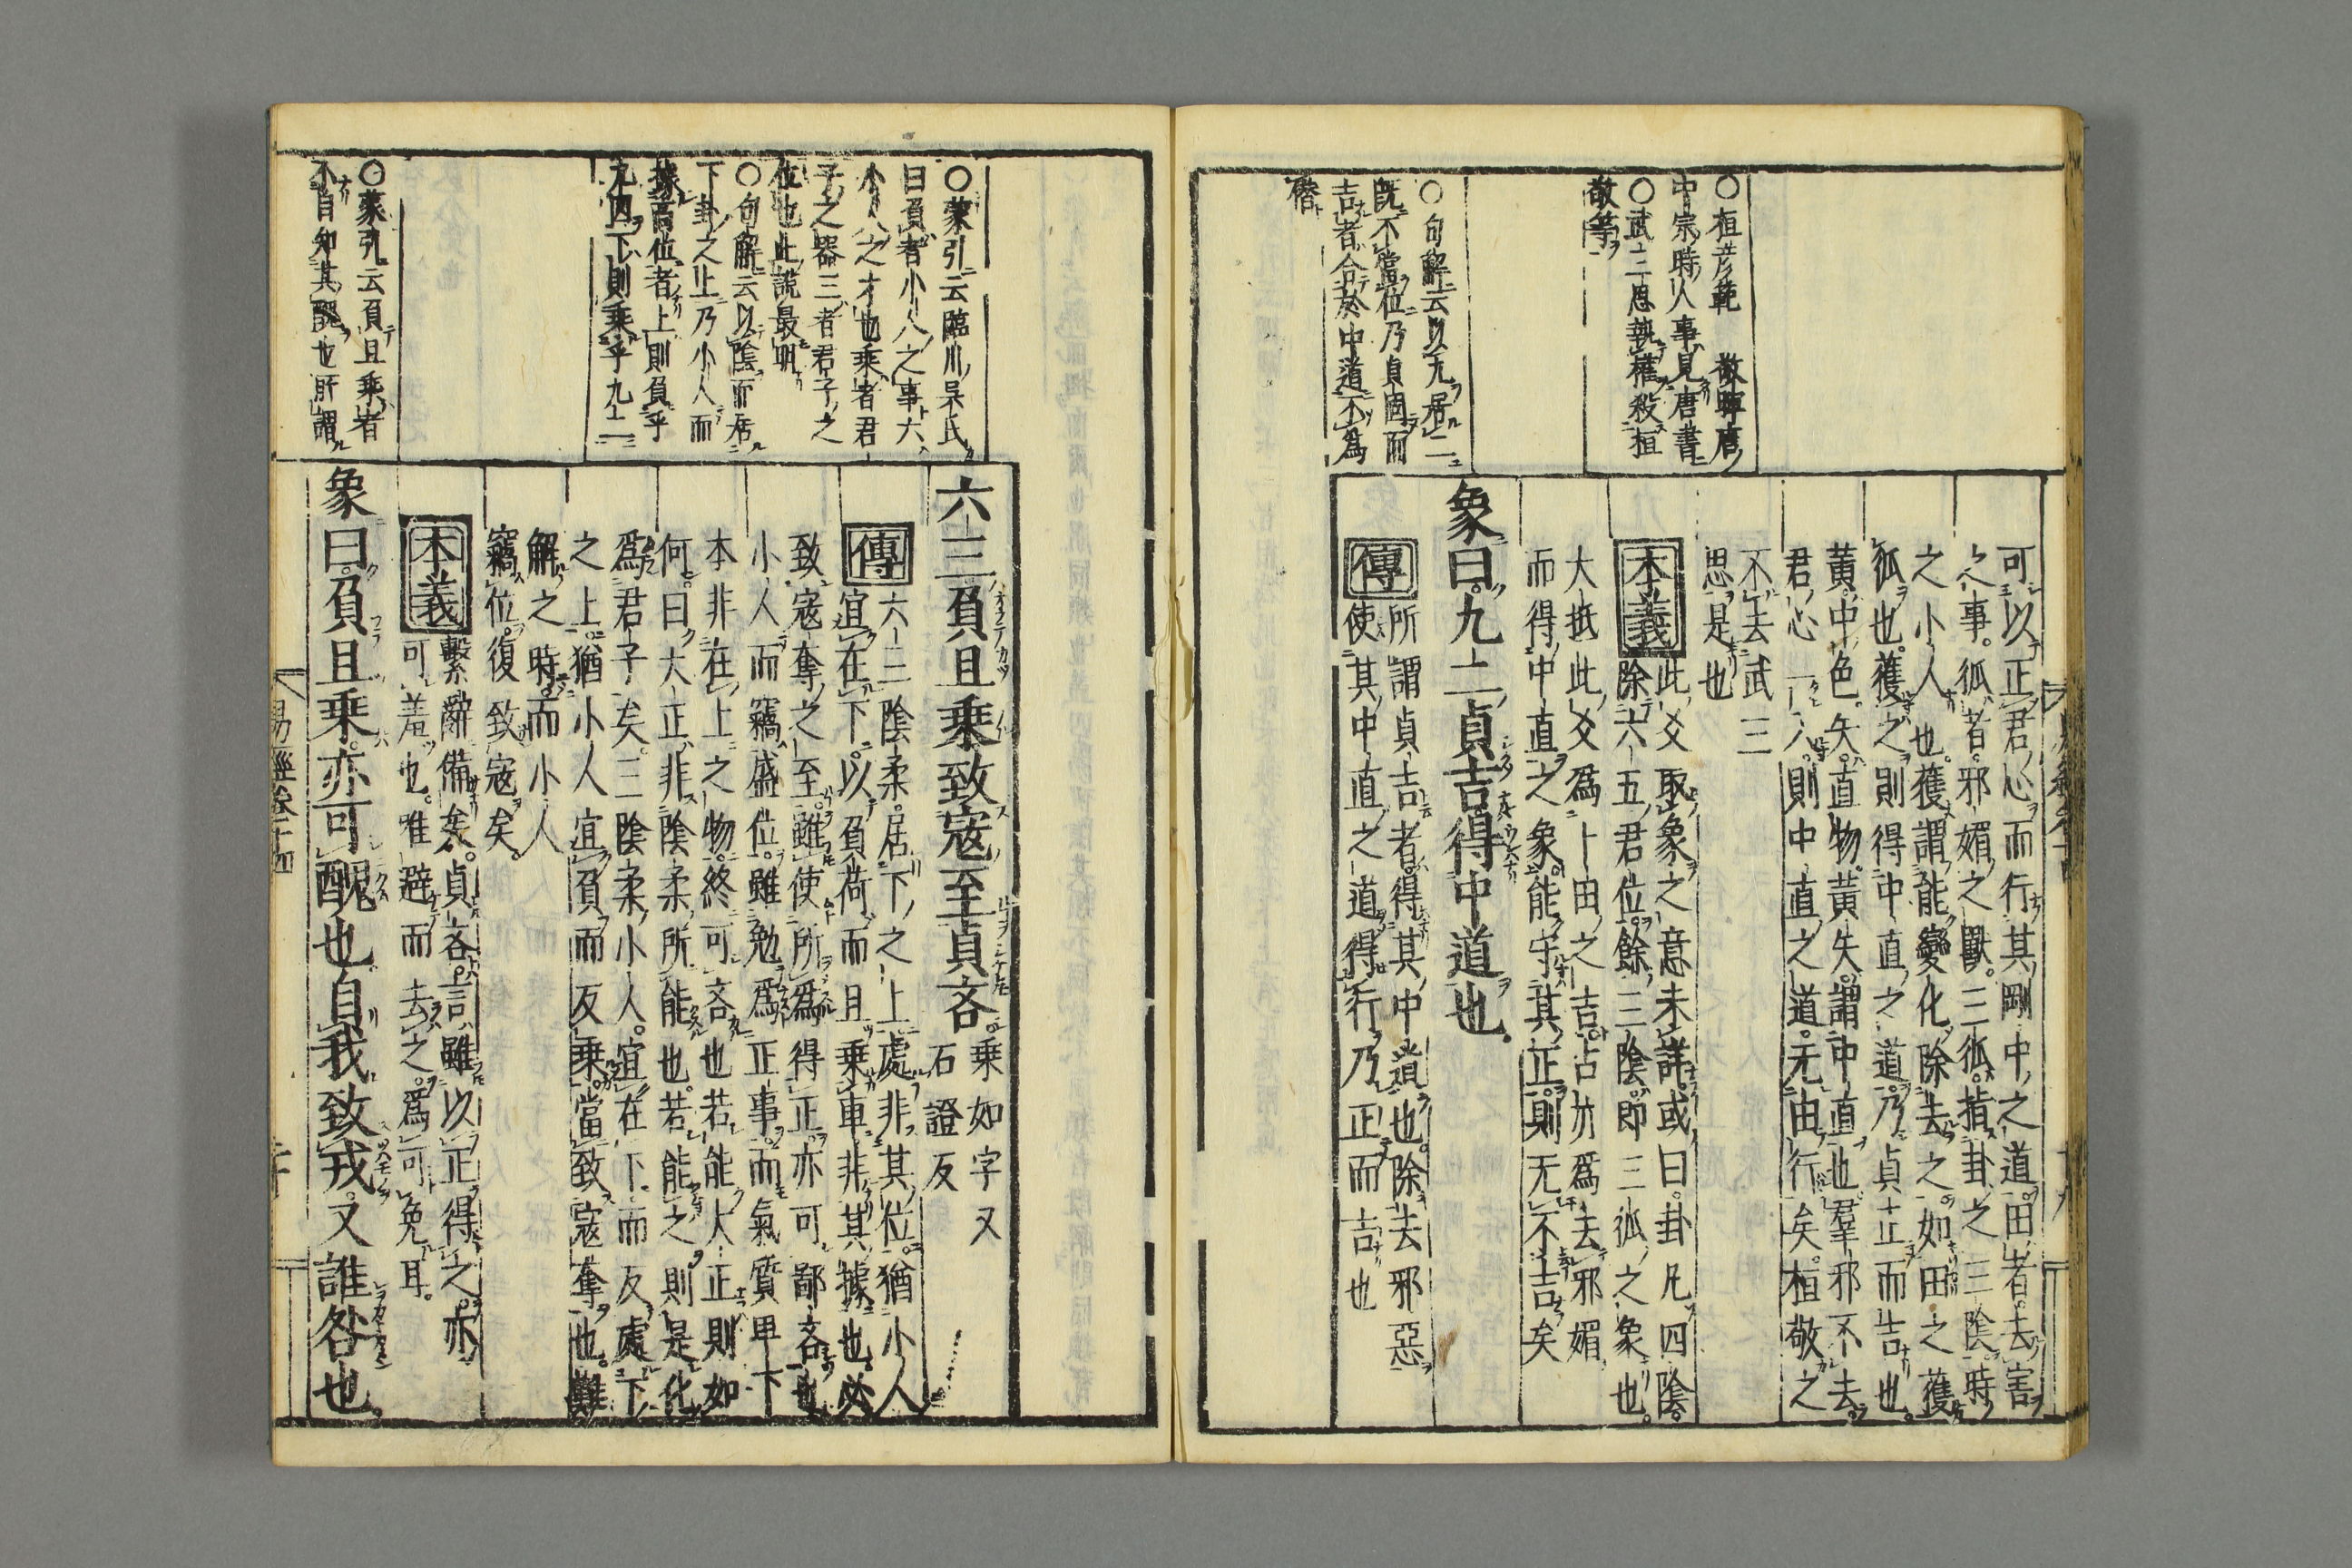 〇桓彦範　敬暉唐
中宗時人事見唐書
〇武三思執權殺桓
敬等
〇句解云以九居二
既不當位乃貞固而
吉者合於中道不爲
僣
可以正君心而行其剛中之道田者去害
之事狐者邪媚之獸三狐指卦之三陰時
之小人也獲謂能變化除去之如田之獲
狐也獲之則得中直之道乃貞正而吉也
黃中色矢直物黃矢謂中直也羣邪不去
君心一入則中直之道无由行矣桓敬之
不去武三
思是也
本義此爻取象之意未詳或曰卦凡四陰
除六五君位餘三陰即三狐之象也
大抵此爻爲卜田之吉占亦爲去邪媚
而得中直之象能守其正則无不吉矣
象曰九二貞吉得中道也
傳所謂貞吉者得其中道也除去邪惡
使其中直之道得行乃正而吉也
〇蒙引云臨川吳氏
曰負者小人之事六
小人之才也乘者君
子之器三者君子之
位也此説最明
〇句解云以陰而居
下卦之上乃小人而
據高位者上則負乎
九四下則乘乎九二
〇蒙引云負且乘者
不自知其醜也所謂
六三負且乘致寇至貞吝乘如字又
石證反
傳六三陰柔居下之上處非其位猶小人
宜在下以負荷而且乘車非其據也必
致寇奪之至雖使所爲得正亦可鄙吝也
小人而竊盛位雖勉爲正事而氣質卑下
本非在上之物終可吝也若能大正則如
何曰大正非陰柔所能也若能之則是化
爲君子矣三陰柔小人宜在下而反處下
之上猶小人宜負而反乘當致寇奪也難
解之時而小人
竊位復致寇矣
本義繫辭備矣貞吝言雖以正得之亦
可羞也唯避而去之爲可免耳
象曰負且乘亦可醜也自我致戎又誰咎也
易經卷十四